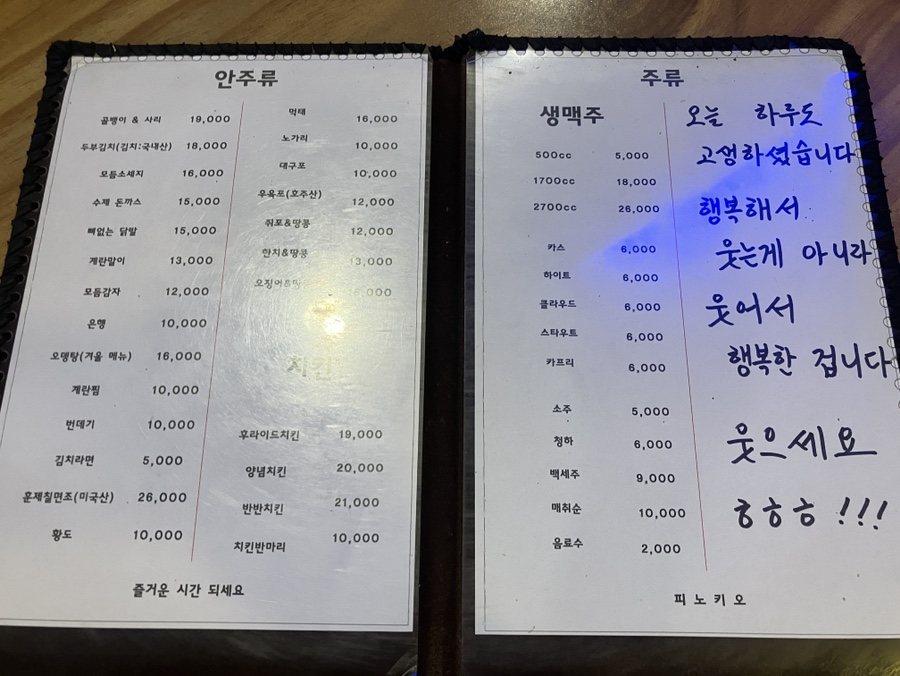 안주류
골뱅이 & 사리 19,000
두부김치(김치:국내산) 18,000
모듬소세지 16,000
수제 돈까스 15,000
뼈없는 닭발 15,000
계란말이 13,000
모듬감자 12,000
은행 10,000
오뎅탕(겨울 메뉴) 16,000
계란찜 10,000
번데기 10,000
김치라면 5,000
훈제칠면조(미국산) 26,000
황도 10,000
먹태 16,000
노가리 10,000
대구포 10,000
우육포(호주산) 12,000
쥐포&땅콩 12,000
한치&땅콩 13,000
오징어&땅콩
치킨
후라이드치킨 19,000
양념치킨 20,000
반반치킨 21,000
치킨반마리 10,000
즐거운 시간 되세요
주류
생맥주
500cc 5,000
1700cc 18,000
2700cc 26,000
카스 6,000
하이트 6,000
클라우드 6,000
스타우트 6,000
카프리 6,000
소주 5,000
청하 6,000
백세주 9,000
매취순 10,000
음료수 2,000
오늘 하루도
고생하셨습니다
행복해서
웃는게 아니라
웃어서
행복한 겁니다
웃으세요
ㅎㅎㅎ !!!
피노키오